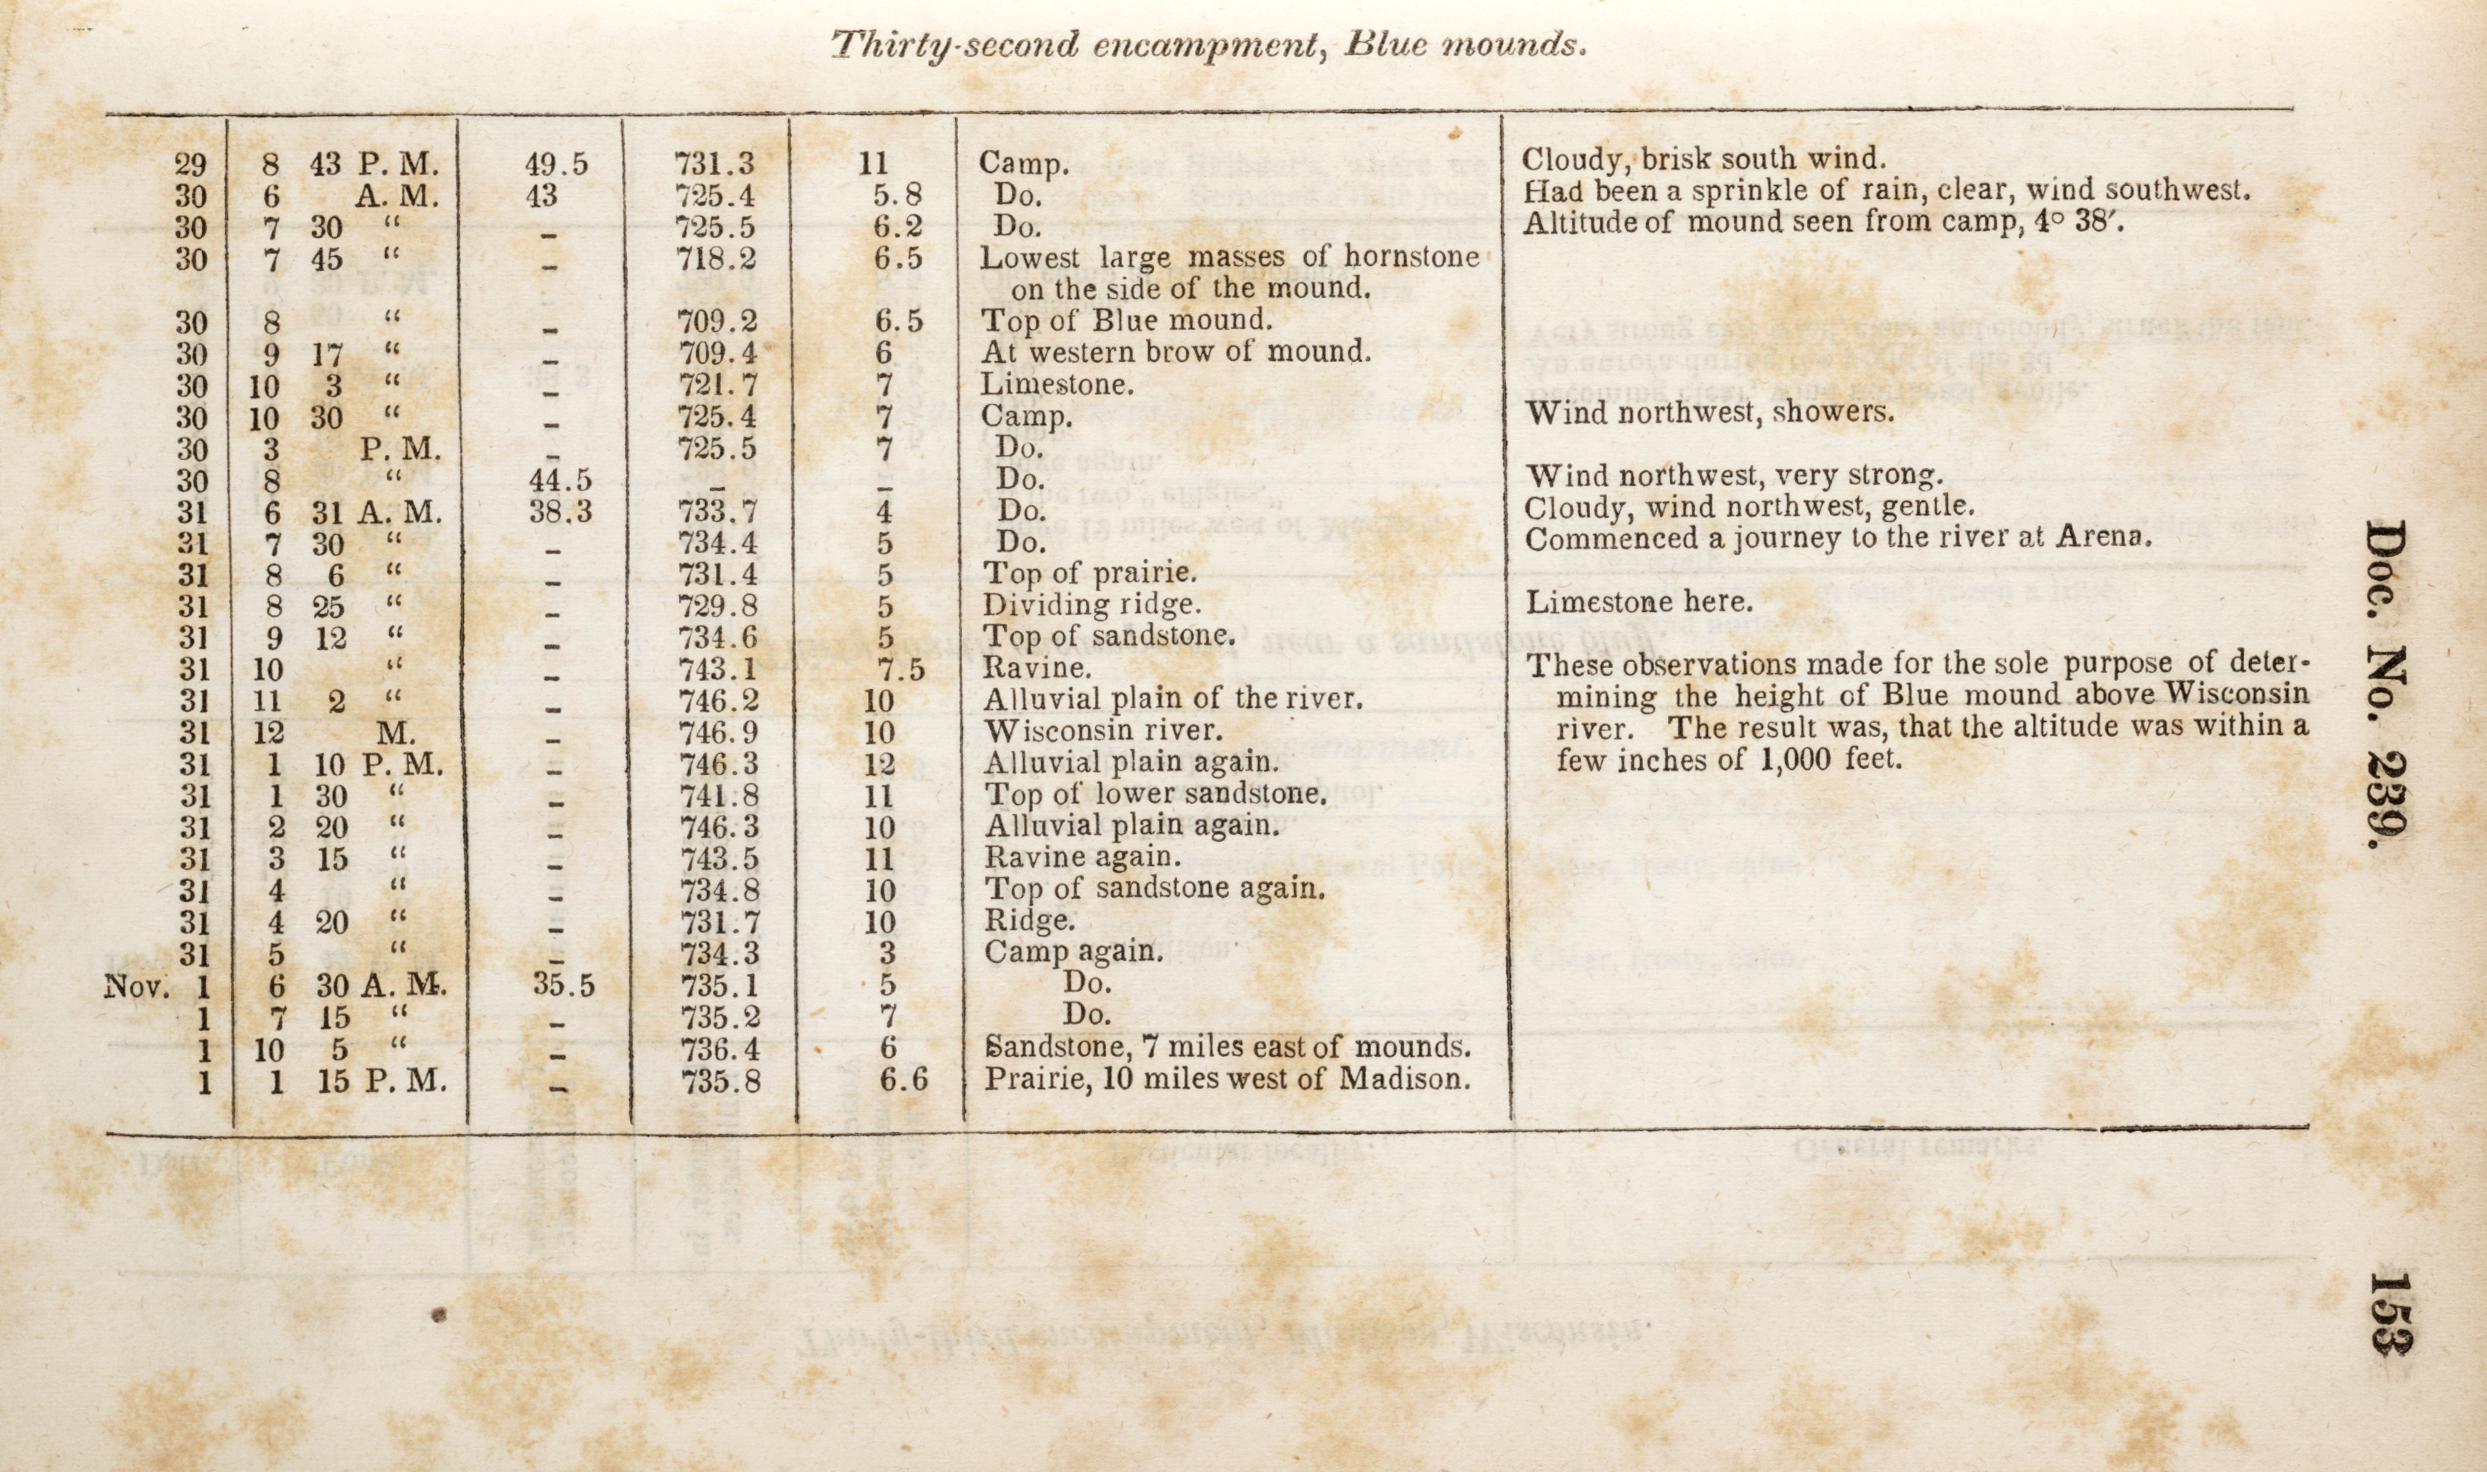 Thirty-second encampment, Blue mounds.
29 8 43 P. M. 49.5 731.3 11 Camp. Cloudy, brisk south wind.
30 6 A. M. 43 725.4 5.8 Do. Had been a sprinkle of rain, clear, wind southwest.
30 7 30 “ – 725.5 6.2 Do. Altitude of mound seen from camp, 4° 38′.
30 7 45 “ – 718.2 6.5 Lowest large masses of hornstone
on the side of the mound.
30 8 “ – 709.2 6.5 Top of Blue mound.
30 9 17 “ – 709.4 6 At western brow of mound.
30 10 3 “ – 721.7 7 Limestone.
30 10 30 “ – 725.4 7 Camp. Wind northwest, showers.
30 3 P. M. – 725.5 7 Do.
30 8 “ 44.5 – – Do. Wind northwest, very strong.
31 6 31 A. M. 38.3 733.7 4 Do. Cloudy, wind northwest, gentle.
31 7 30 “ – 734.4 5 Do. Commenced a journey to the river at Arena.
31 8 6 “ – 731.4 5 Top of prairie.
31 8 25 “ – 729.8 5 Dividing ridge. Limestone here.
31 9 12 “ – 734.6 5 Top of sandstone.
31 10 “ – 743.1 7.5 Ravine. These observations made for the sole purpose of deter-
31 11 2 “ – 746.2 10 Alluvial plain of the river. mining the height of Blue mound above Wisconsin
31 12 M. – 746.9 10 Wisconsin river. river. The result was, that the altitude was within a
31 1 10 P. M. – 746.3 12 Alluvial plain again. few inches of 1,000 feet.
31 1 30 “ – 741.8 11 Top of lower sandstone.
31 2 20 “ – 746.3 10 Alluvial plain again.
31 3 15 “ – 743.5 11 Ravine again.
31 4 “ – 734.8 10 Top of sandstone again.
31 4 20 “ – 731.7 10 Ridge.
31 5 “ – 734.3 3 Camp again.
Nov. 1 6 30 A. M. 35.5 735.1 5 Do.
1 7 15 “ – 735.2 7 Do.
1 10 5 “ – 736.4 6 Sandstone, 7 miles east of mounds.
1 1 15 P. M. – 735.8 6.6 Prairie, 10 miles west of Madison.
Doc. No. 239.
153